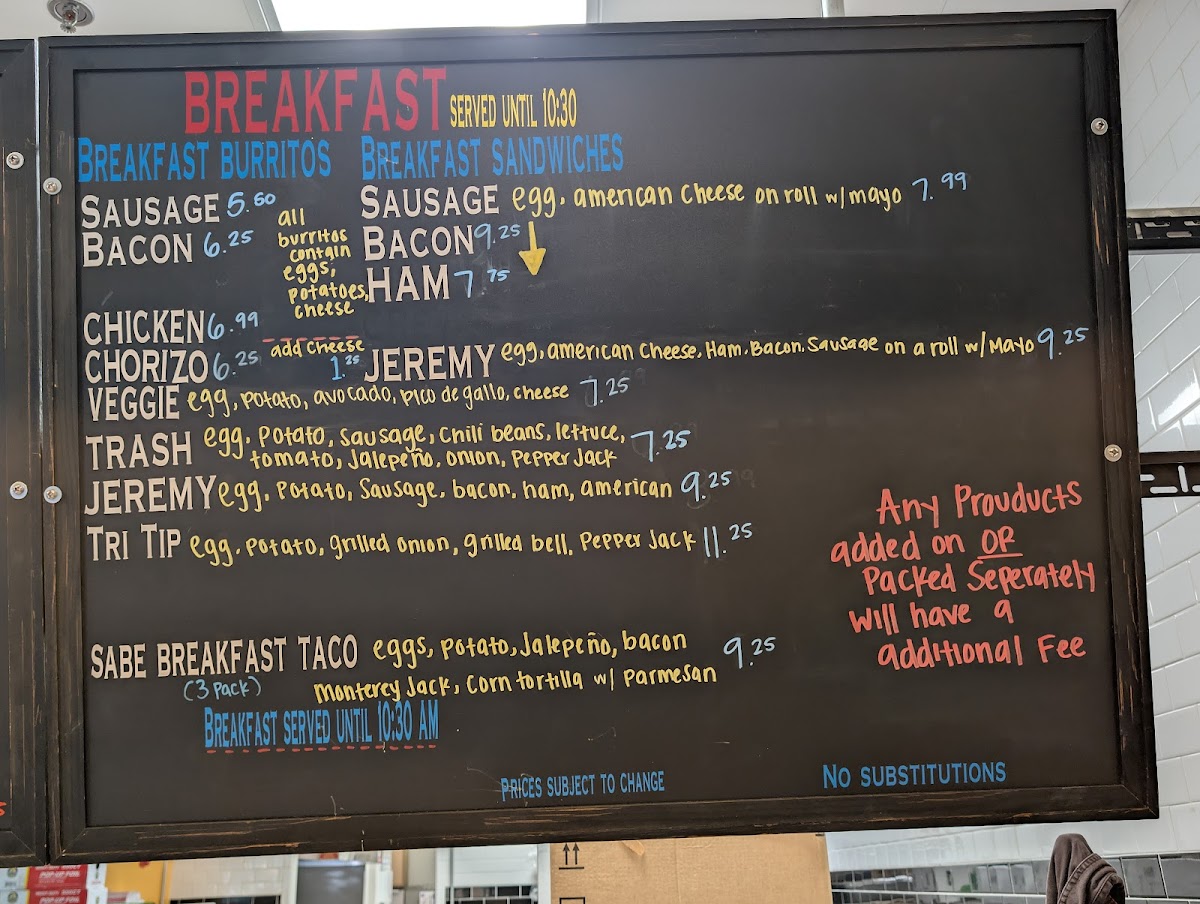 BREAKFAST SERVED UNTIL 10:30
BREAKFAST BURRITOS
SAUSAGE 5.60
BACON 6.25
all
burritos
contain
eggs,
potatoes,
cheese
CHICKEN 6.99
CHORIZO 6.25
add cheese
1.25
VEGGIE egg, potato, avocado, pico de gallo, cheese 7.25
TRASH egg, potato, sausage, chili beans, lettuce, 7.25
tomato, jalepeño, onion, pepper jack
JEREMY egg, potato, sausage, bacon, ham, american 9.25
TRI TIP egg, potato, grilled onion, grilled bell, pepper jack 11.25
BREAKFAST SANDWICHES
SAUSAGE egg, american cheese on roll w/mayo 7.99
BACON 9.25
HAM 7.75
JEREMY egg, american cheese, Ham, Bacon, Sausage on a roll w/Mayo 9.25
SABE BREAKFAST TACO eggs, potato, jalepeño, bacon 9.25
(3 pack) monterey Jack, corn tortilla w/ parmesan
BREAKFAST SERVED UNTIL 10:30 AM
Any Prouducts
added on OR
Packed Seperately
will have a
additional Fee
PRICES SUBJECT TO CHANGE
NO SUBSTITUTIONS